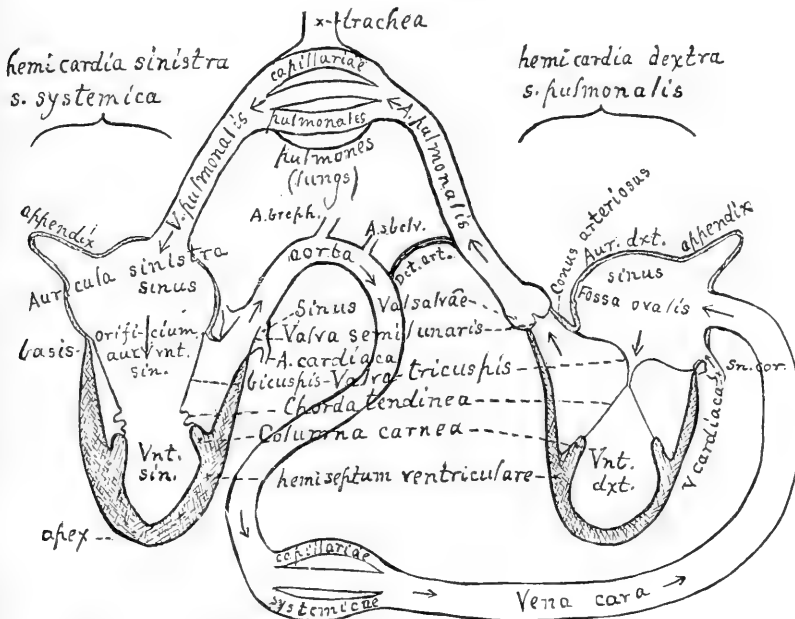 x-trachea
hemicardia sinistra
s. systemica
hemicardia dextra
s. pulmonalis
capillariae
pulmonales
pulmones
(lungs)
V. pulmonalis
A. pulmonalis
A. breph.
A. sbclv.
aorta
Dct. art.
appendix
Auricula sinistra
sinus
Conus arteriosus
Aur. dxt.
appendix
sinus
Fossa ovalis
basis
orificium
aur. vnt.
sin.
Sinus Valsalvae
Valva semilunaris
A. cardiaca
bicuspis-Valva-tricuspis
Chorda tendinea
Columna carnea
hemiseptum ventriculare
Sn. cor.
V cardiaca
Vnt.
sin.
Vnt.
dxt.
apex
capillariae
systemicae
Vena cava